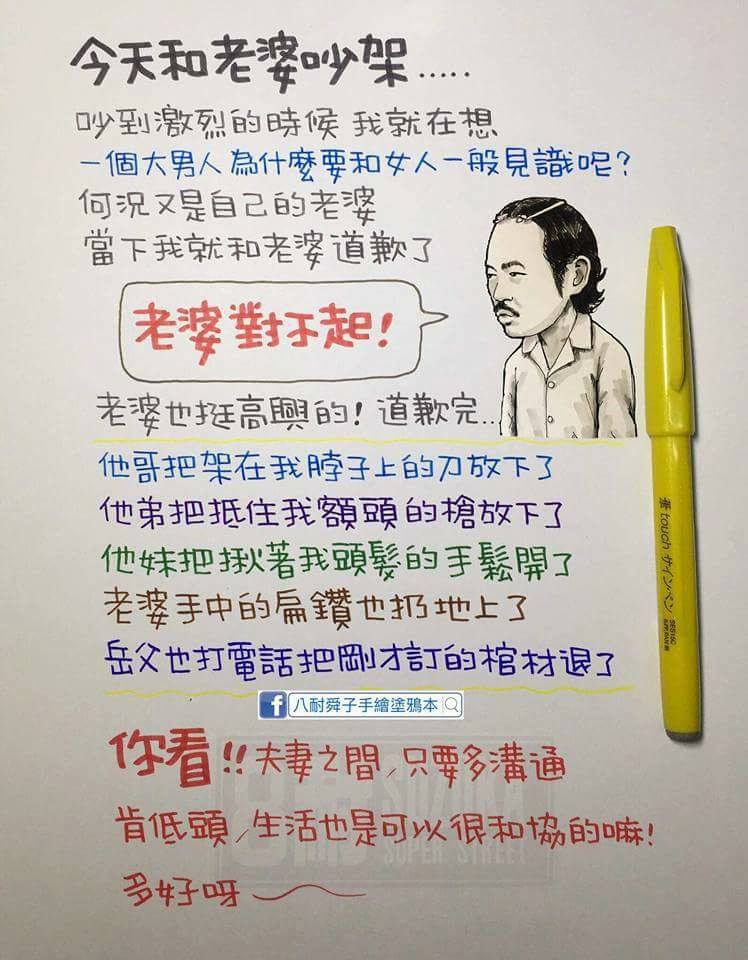 今天和老婆吵架.....
吵到激烈的時候 我就在想
一個大男人為什麼要和女人一般見識呢?
何況又是自己的老婆
當下我就和老婆道歉了
老婆對不起!
老婆也挺高興的! 道歉完...
他哥把架在我脖子上的刀放下了
他弟把抵住我額頭的槍放下了
他妹把揪著我頭髮的手鬆開了
老婆手中的扁鑽也扔地上了
岳父也打電話把剛才訂的棺材退了
八耐舜子手繪塗鴉本
你看!! 夫妻之間,只要多溝通
肯低頭,生活也是可以很和協的嘛!
多好呀
touch サインペン
SES15C
SUPER STREET